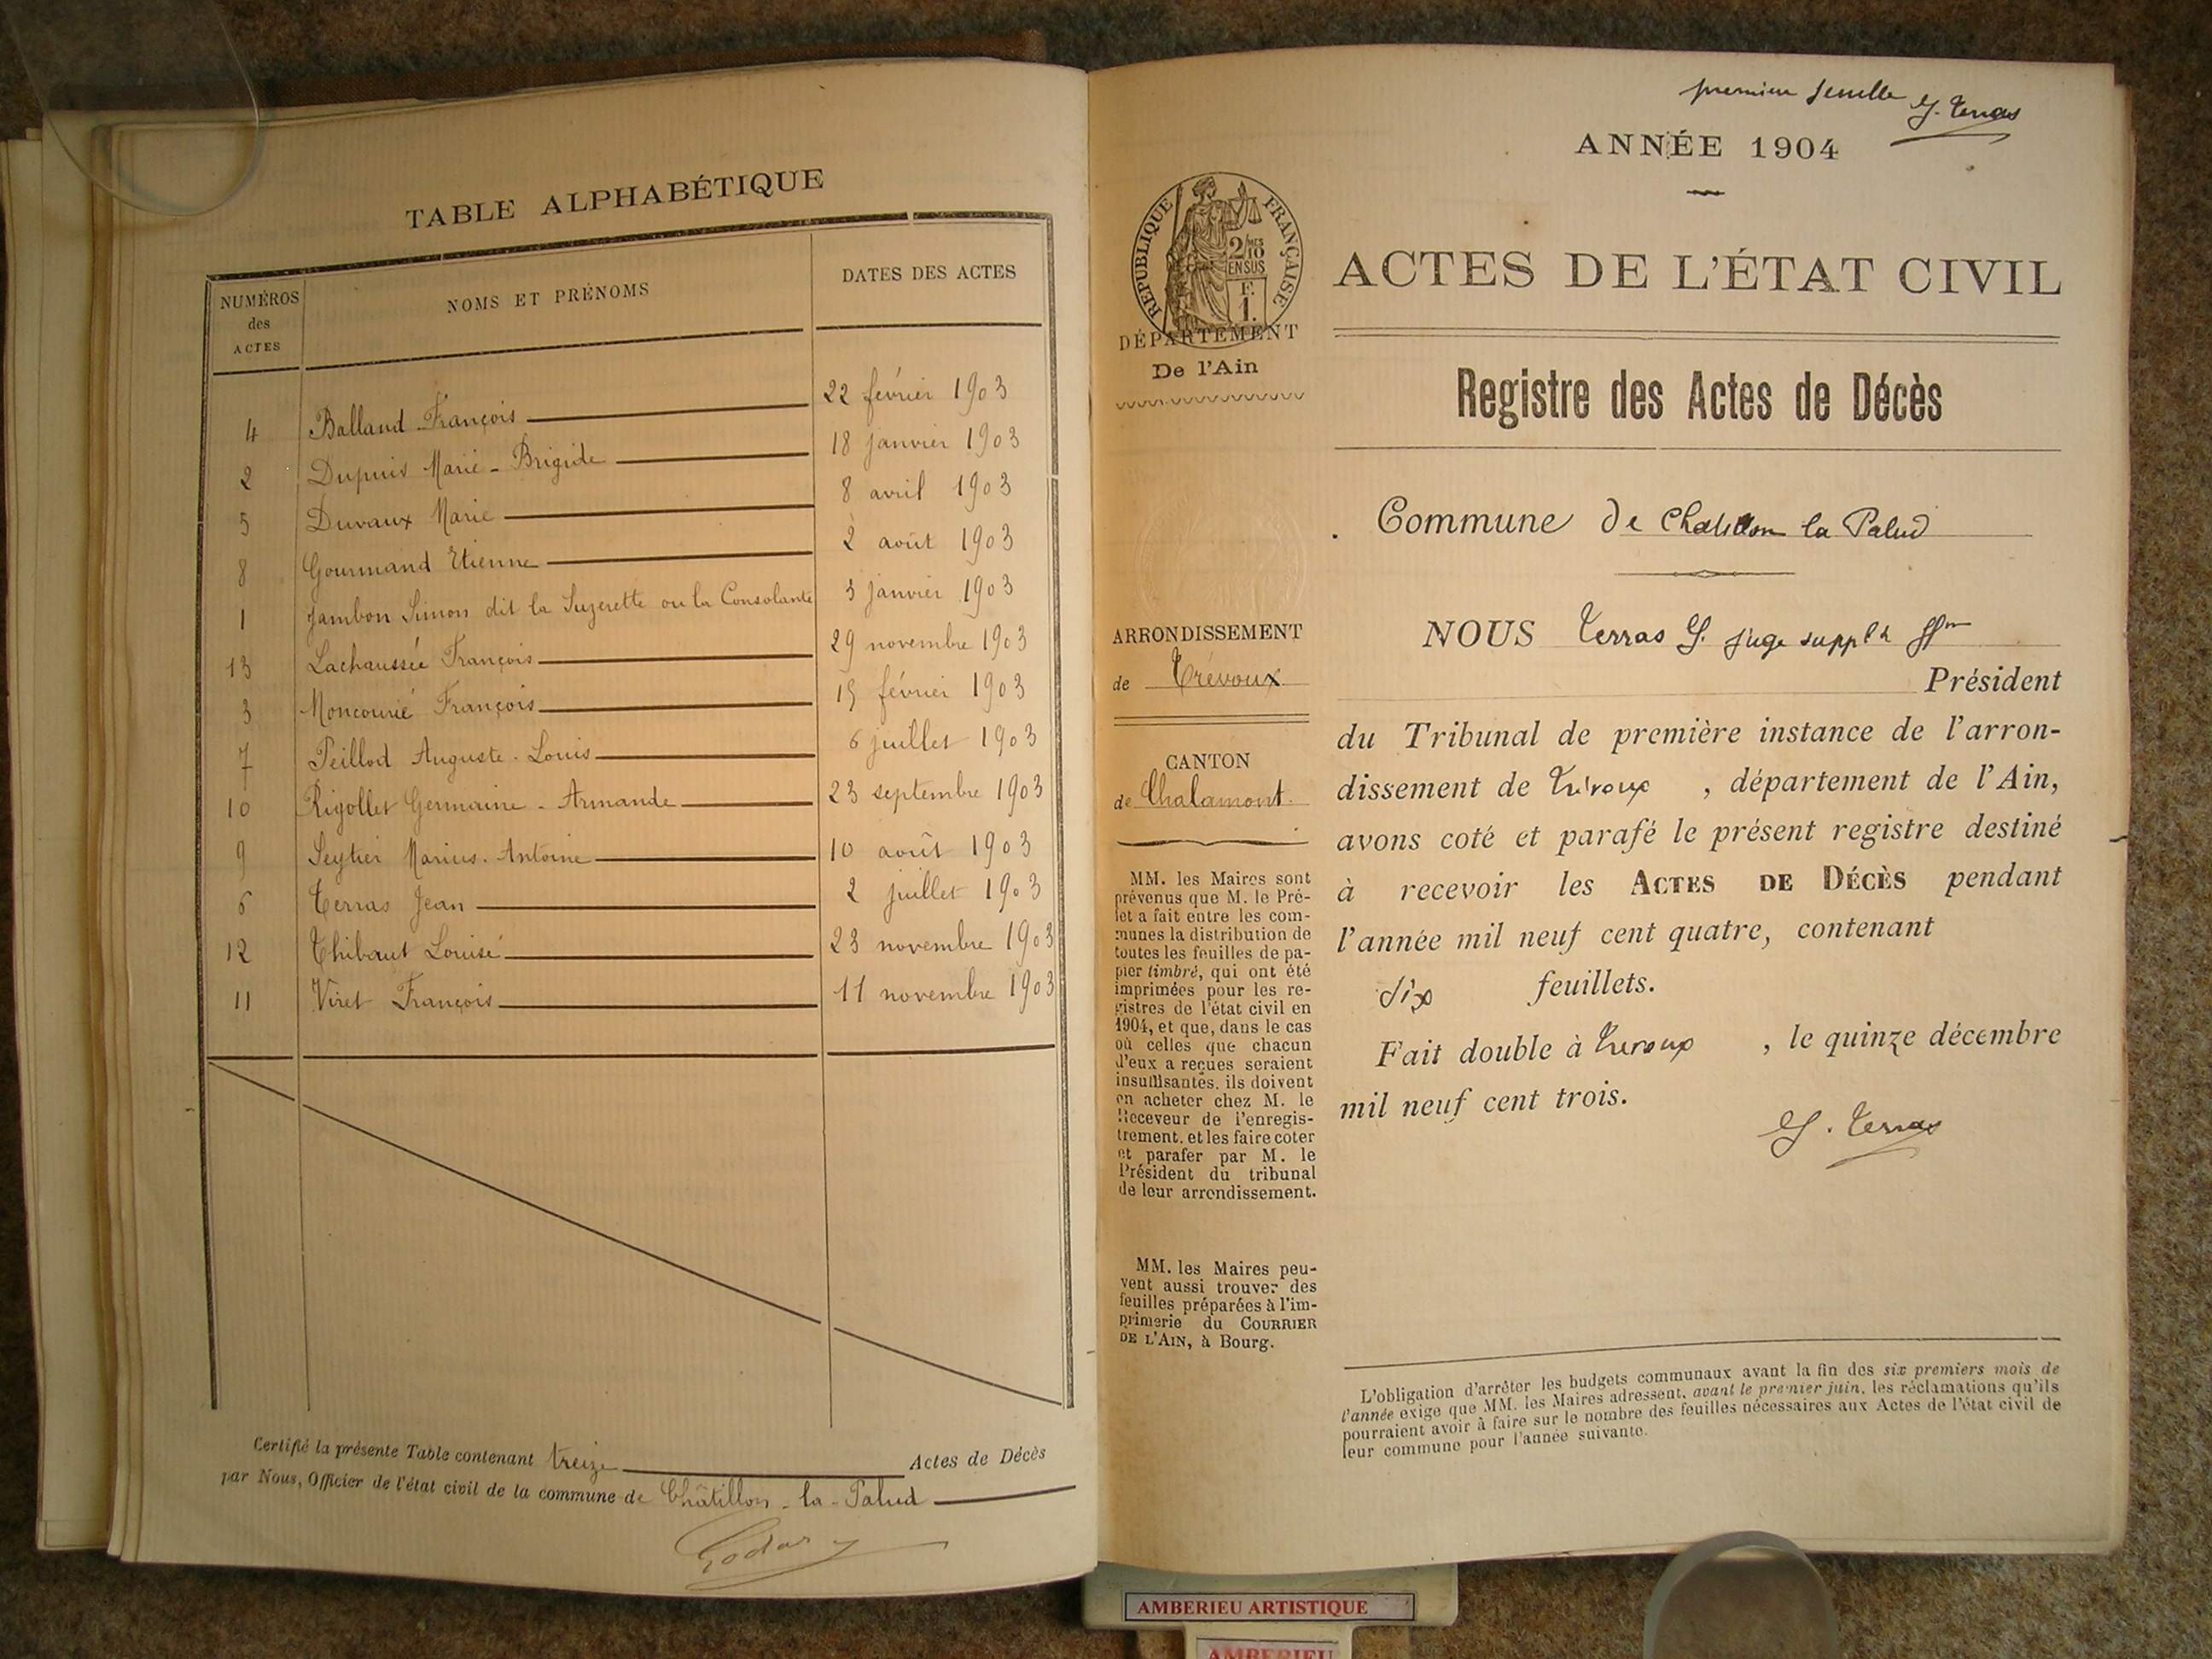 TABLE ALPHABÉTIQUE
NUMÉROS des ACTES NOMS ET PRÉNOMS DATES DES ACTES
4 Balland François 22 février 1903
2 Dupuis Marie-Brigide 18 janvier 1903
5 Duvaux Marie 8 avril 1903
8 Gourmand Etienne 2 août 1903
1 Jambon Simon dit la Suzerette ou la Consolante 3 janvier 1903
13 Lachaussée François 29 novembre 1903
3 Moncourié François 15 février 1903
7 Peillod Auguste-Louis 6 juillet 1903
10 Rigollet Germaine-Armande 23 septembre 1903
9 Seytier Marius-Antoine 10 août 1903
6 Terras Jean 2 juillet 1903
12 Thibaut Louise 23 novembre 1903
11 Viret François 11 novembre 1903
Certifié la présente Table contenant treize Actes de Décès
par Nous, Officier de l'état civil de la commune de Châtillon-la-Palud
première feuille G. Terras
ANNÉE 1904
RÉPUBLIQUE FRANÇAISE
2/10 MES
EN SUS
F.
1.
DÉPARTEMENT
De l'Ain
ACTES DE L'ÉTAT CIVIL
Registre des Actes de Décès
Commune de Chatillon la Palud
ARRONDISSEMENT
de Trévoux
CANTON
de Chalamont.
MM. les Maires sont
prévenus que M. le Pré-
fet a fait entre les com-
munes la distribution de
toutes les feuilles de pa-
pier timbré, qui ont été
imprimées pour les re-
gistres de l'état civil en
1904, et que, dans le cas
où celles que chacun
d'eux a reçues seraient
insuffisantes, ils doivent
en acheter chez M. le
Receveur de l'enregis-
trement, et les faire coter
et parafer par M. le
Président du tribunal
de leur arrondissement.
MM. les Maires peu-
vent aussi trouver des
feuilles préparées à l'im-
primerie du COURRIER
DE L'AIN, à Bourg.
NOUS Terras G. juge suppl
Président
du Tribunal de première instance de l'arron-
dissement de Trévoux, département de l'Ain,
avons coté et parafé le présent registre destiné
à recevoir les ACTES DE DÉCÈS pendant
l'année mil neuf cent quatre, contenant
dix feuillets.
Fait double à Trevoux, le quinze décembre
mil neuf cent trois.
G. Terras
L'obligation d'arrêter les budgets communaux avant la fin des six premiers mois de
l'année exige que MM. les Maires adressent, avant le premier juin, les réclamations qu'ils
pourraient avoir à faire sur le nombre des feuilles nécessaires aux Actes de l'état civil de
leur commune pour l'année suivante.
AMBERIEU ARTISTIQUE
AMBERIEU